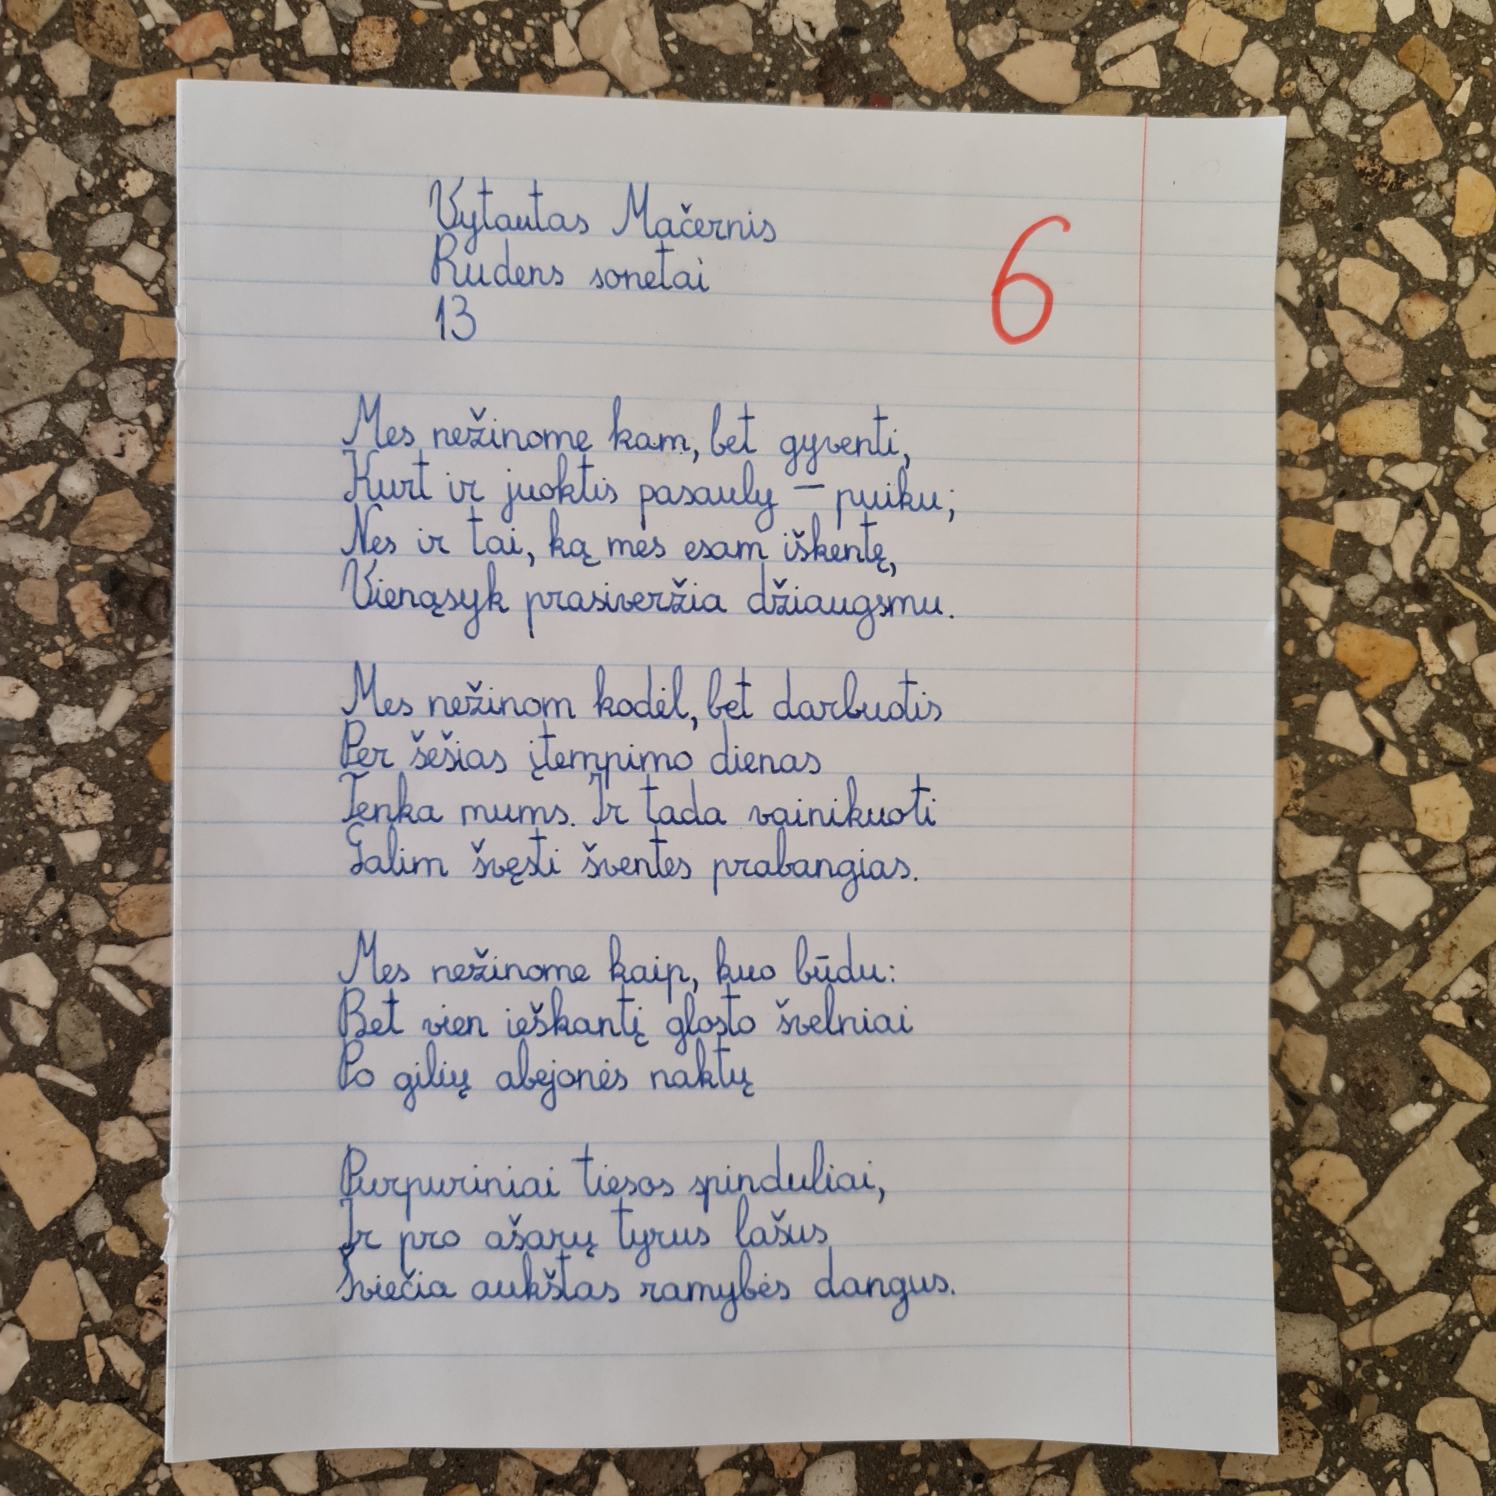 Vytautas Mačernis
Rudens sonetai
13
6
Mes nežinome kam, bet gyventi,
Kurt ir juoktis pasauly – puiku;
Nes ir tai, ką mes esam iškentę,
Vienąsyk prasiveržia džiaugsmu.
Mes nežinom kodėl, bet darbuotis
Per šešias įtempimo dienas
Tenka mums. Ir tada vainikuoti
Galim švęsti šventes prabangias.
Mes nežinome kaip, kuo būdu:
Bet vien ieškantį glosto švelniai
Po gilių abejonės naktų
Purpuriniai tiesos spinduliai,
Ir pro ašarų tyrus lašus
Šviečia aukštas ramybės dangus.